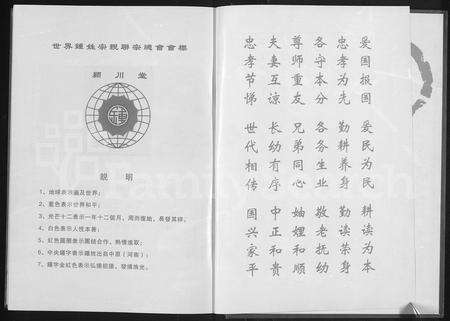 世界鍾姓宗親聯宗總會會標
穎川堂
鍾
說 明
1、地球表示遍及世界;
2、藍色表示世界和平;
3、光芒十二表示一年十二個月,周而復始,長發其祥。
4、白色表示人性本善;
5、紅色圓圈表示團結合作,熱情進取;
6、中央鍾字表示鍾姓出自中原(河南);
7、鍾字金紅色表示弘揚祖德,發揚族光。
爱国报国 爱民为民 耕读为本
忠孝为先 勤耕养身 勤读荣身
各守本分 各务生业 敬老抚幼
尊师重友 兄弟同心 妯娌和顺
夫妻互谅 长幼有序 中正和贵
忠孝节悌 世代相传 国兴家平